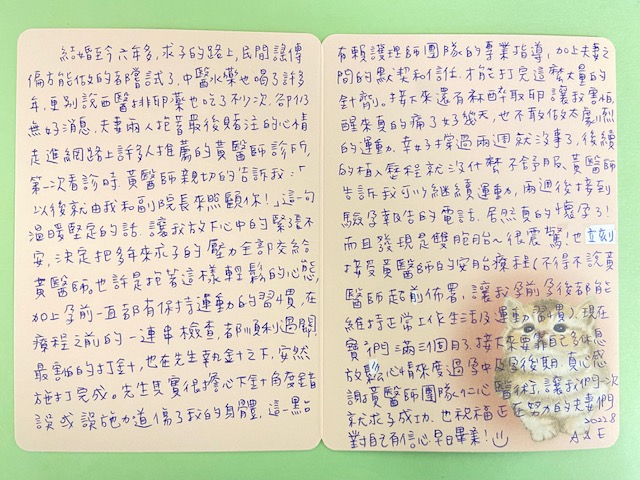 結婚至今六年多，求子的路上，民間謠傳
偏方能做的都嘗試了，中醫水藥也喝了許多
年，更別說西醫排卵藥也吃了不少次，卻仍
無好消息，夫妻兩人抱着最後賭注的心情
走進網路上許多人推薦的黃醫師診所，
第一次看診時，黃醫師親切的告訴我：「
以後就由我和副院長來照顧你！」這一句
溫暖堅定的話，讓我放下心中的緊張不
安，決定把多年來求子的壓力全部交給
黃醫師，也許是抱著這樣輕鬆的心態，
加上孕前一直都有保持運動的習慣，在
療程之前的一連串檢查，都順利過關，
最害怕的打針，也在先生執針之下，安然
施打完成。先生其實很擔心下針角度錯
誤或誤施力道傷了我的身體，這一點
有賴護理師團隊的專業指導，加上夫妻之
間的默契和信任，才能打完這麼大量的
針劑。接下來還有麻醉取卵讓我害怕，
醒來真的痛了好幾天，也不敢做太激烈
的運動，幸好撐過兩週就沒事了，後續
的植入歷程就沒什麼不舒服，黃醫師
告訴我可以繼續運動，兩週後接到
驗孕報告的電話，居然真的懷孕了！
而且發現是雙胞胎～很震驚！也立刻
接受黃醫師的安胎療程（不得不說黃
醫師超前佈署，讓我孕前孕後都能
維持正常工作生活及運動習慣），現在
寶寶們滿三個月了，接下來要靠自己多休息
放鬆心情來度過孕中及孕後期，真心感
謝黃醫師團隊仁心醫術，讓我們一次
就求子成功，也祝福正在努力的夫妻們
對自己有信心早日畢業！
2022.8
A & E